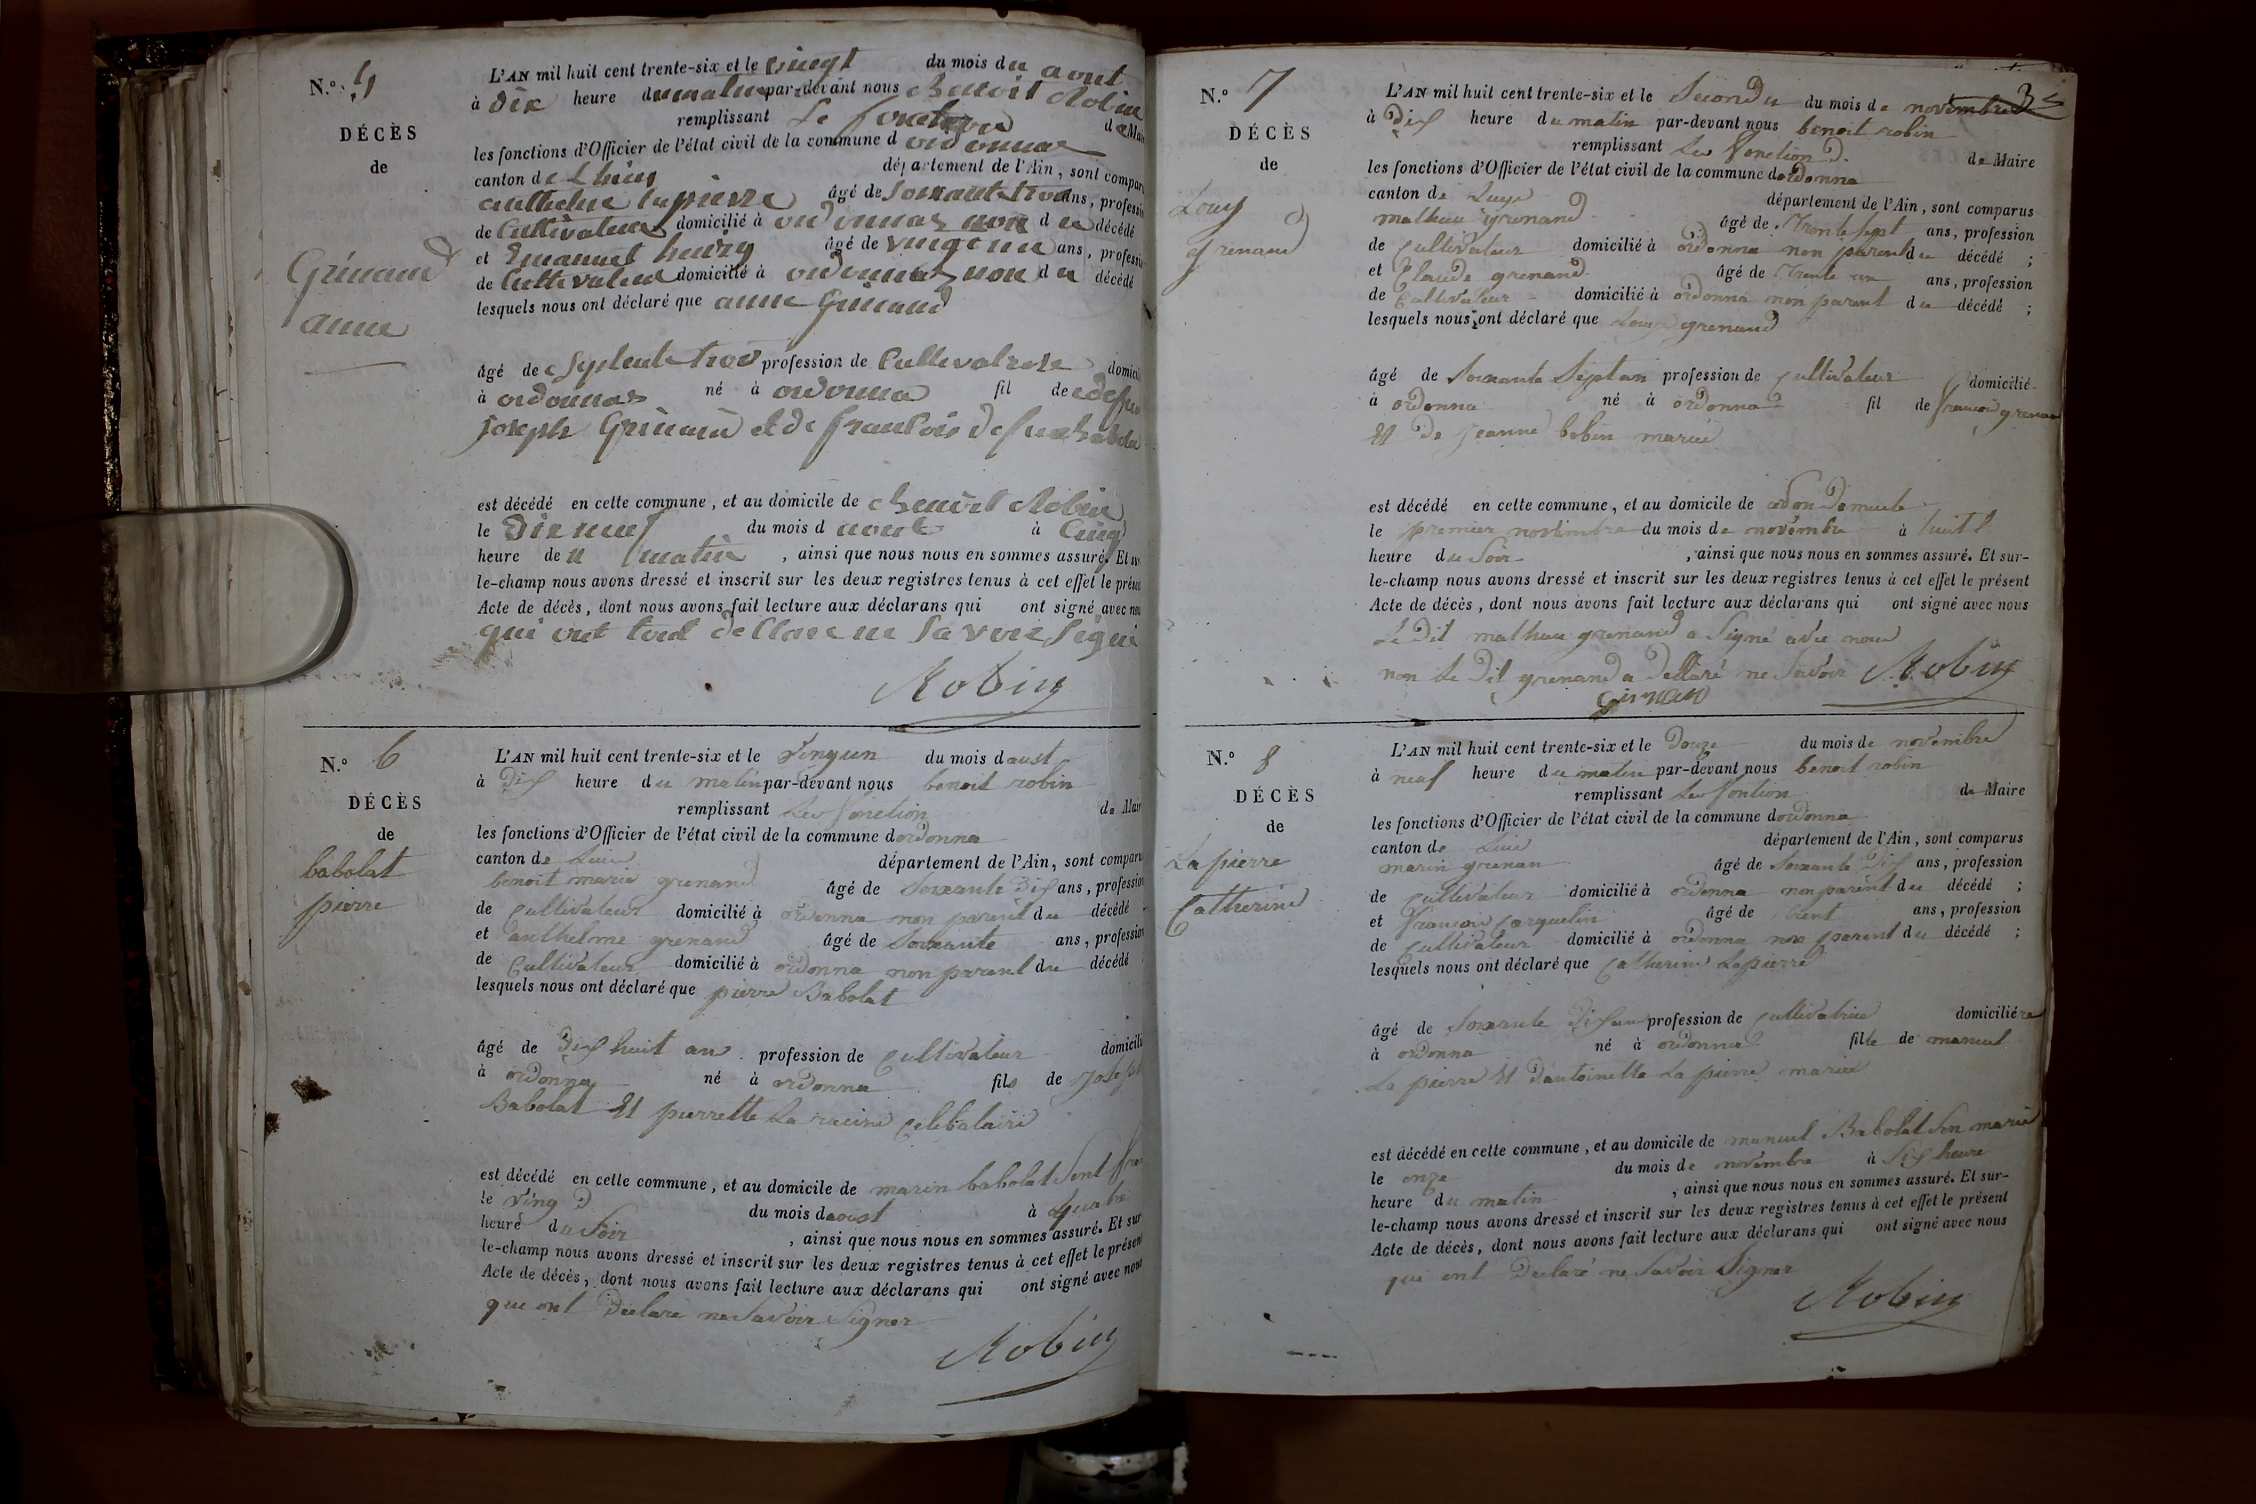 N.º 5
DÉCÈS
de
Grinand
anne
L'AN mil huit cent trente-six et le vingt du mois du aout
à Dix heure du matin par-devant nous Benoit Robin
remplissant Le fonction de Maire
les fonctions d'Officier de l'état civil de la commune d ordonnaz
canton de Lhuis département de l'Ain, sont comparu
anthelme lapierre âgé de soixante trois ans, profession
de Cultivateur domicilié à ordonnaz non du décédé
et Emanuel henry âgé de vingt un ans, profession
de Cultivateur domicilié à ordonnaz non du décédé
lesquels nous ont déclaré que anne Grinand
âgé de Septente trois profession de Cultivatrise domicili
à ordonnaz né à ordonna fil de defeu
joseph Grinand et de francoise defeue babolat
est décédé en cette commune, et au domicile de Benoit Robin
le Dix neuf du mois d aout à Cinq
heure deu matin, ainsi que nous nous en sommes assuré. Et sur
le-champ nous avons dressé et inscrit sur les deux registres tenus à cet effet le présent
Acte de décès, dont nous avons fait lecture aux déclarans qui ont signé avec nous
qui ont tout declare ne savoir signe
Robin
N.º 6
DÉCÈS
de
babolat
pierre
L'AN mil huit cent trente-six et le vingun du mois daust
à Dix heure du matin par-devant nous benoit robin
remplissant Les fonction de Maire
les fonctions d'Officier de l'état civil de la commune dordonna
canton de Luis département de l'Ain, sont comparu
benoit marie grenand âgé de Soixante Dix ans, profession
de Cultivateur domicilié à ordonna non parent du décédé
et anthelme grenand âgé de Soixante ans, profession
de Cultivateur domicilié à ordonna non parent du décédé
lesquels nous ont déclaré que pierre Babolat
âgé de Dix huit an profession de Cultivateur domicilié
à ordonna né à ordonna fils de Joseph
Babolat Et pierrette La racine Celibataire
est décédé en celle commune, et au domicile de marin babolat Sont frere
le ving du mois daoust à quatre
heure du Soir, ainsi que nous nous en sommes assuré. Et sur
le-champ nous avons dressé et inscrit sur les deux registres tenus à cet effet le présent
Acte de décès, dont nous avons fait lecture aux déclarans qui ont signé avec nous
que ont Declare ne Savoir Signer
Robin
N.º 7
DÉCÈS
de
Louy
grenand
L'AN mil huit cent trente-six et le Second du du mois de novembre
à Dix heure du matin par-devant nous benoit robin
remplissant Les fonction de Maire
les fonctions d'Officier de l'état civil de la commune dordonna
canton de Luys département de l'Ain, sont comparus
mathieu grenand âgé de Trente sept ans, profession
de Cultivateur domicilié à ordonna non parent du décédé;
et Claude grenand âgé de Trente un ans, profession
de Cultivateur domicilié à ordonna non parent du décédé;
lesquels nous ont déclaré que Louys grenand
âgé de Soixante Sept an profession de Cultivateur domicilié
à ordonna né à ordonna fil de francois grenand
Et De Jeanne bobin marié
est décédé en cette commune, et au domicile de
le premier novembre du mois de novembre à huit
heure du Soir, ainsi que nous nous en sommes assuré. Et sur-
le-champ nous avons dressé et inscrit sur les deux registres tenus à cet effet le présent
Acte de décès, dont nous avons fait lecture aux déclarans qui ont signé avec nous
Le Dit mathieu grenand a Signé avec nous
non le Dit grenand a Dellaré ne Savoir Robin
N.º 8
DÉCÈS
de
Lapierre
Catherine
L'AN mil huit cent trente-six et le Douze du mois de novembre
à neuf heure du matin par-devant nous benoit robin
remplissant Les fontion de Maire
les fonctions d'Officier de l'état civil de la commune dordonna
canton de Luis département de l'Ain, sont comparus
marin grenan âgé de Soixante Dix ans, profession
de Cultivateur domicilié à ordonna non parent du décédé;
et francois Carquelin âgé de ans, profession
de Cultivateur domicilié à ordonna non parent du décédé;
lesquels nous ont déclaré que Catherine Lapierre
âgé de Soixante Dix an profession de Cultivatrice domiciliére
à ordonna né à ordonna fille de manuel
La pierre Et Dantoinette La pierre mariée
est décédé en cette commune, et au domicile de manuel Babolat Son marie
le onze du mois de novembre à Six heure
heure du matin, ainsi que nous nous en sommes assuré. Et sur-
le-champ nous avons dressé et inscrit sur les deux registres tenus à cet effet le présent
Acte de décès, dont nous avons fait lecture aux déclarans qui ont signé avec nous
qui ont Declaré ne Savoir Signer
Robin